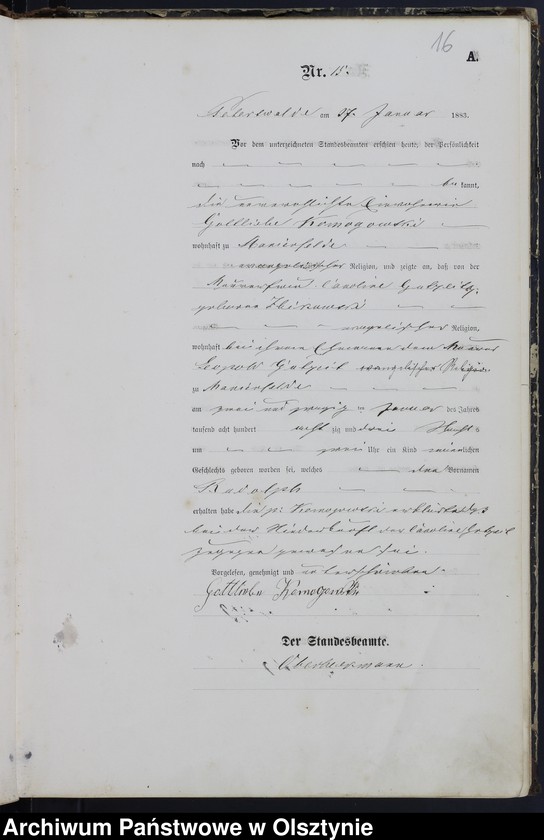 16
A.
Nr. 15.
Peterswalde am 27. Januar 1883.
Vor dem unterzeichneten Standesbeamten erschien heute, der Persönlichkeit
nach
bekannt,
die unverehelichte Einwohnerin
Gottliebe Komogowski
wohnhaft zu Marienfelde
evangelischer Religion, und zeigte an, daß von der
Maurerfrau Caroline
geborene
evangelischer Religion,
wohnhaft bei ihrem Ehemann dem Maurer
Leopold evangelischer Religion
zu Marienfelde
am zwei und zwanzig ten Januar des Jahres
tausend acht hundert acht zig und drei Nachts
um zwei Uhr ein Kind männlichen
Geschlechts geboren worden sei, welches den Vornamen
Rudolph
erhalten habe die p. Komogowski erklärte daß sie
bei der Niederkunft der Caroline
zugegen gewesen sei.
Vorgelesen, genehmigt und unterschrieben
Gottliebe Komogowski
Der Standesbeamte.
Archiwum Państwowe w Olsztynie